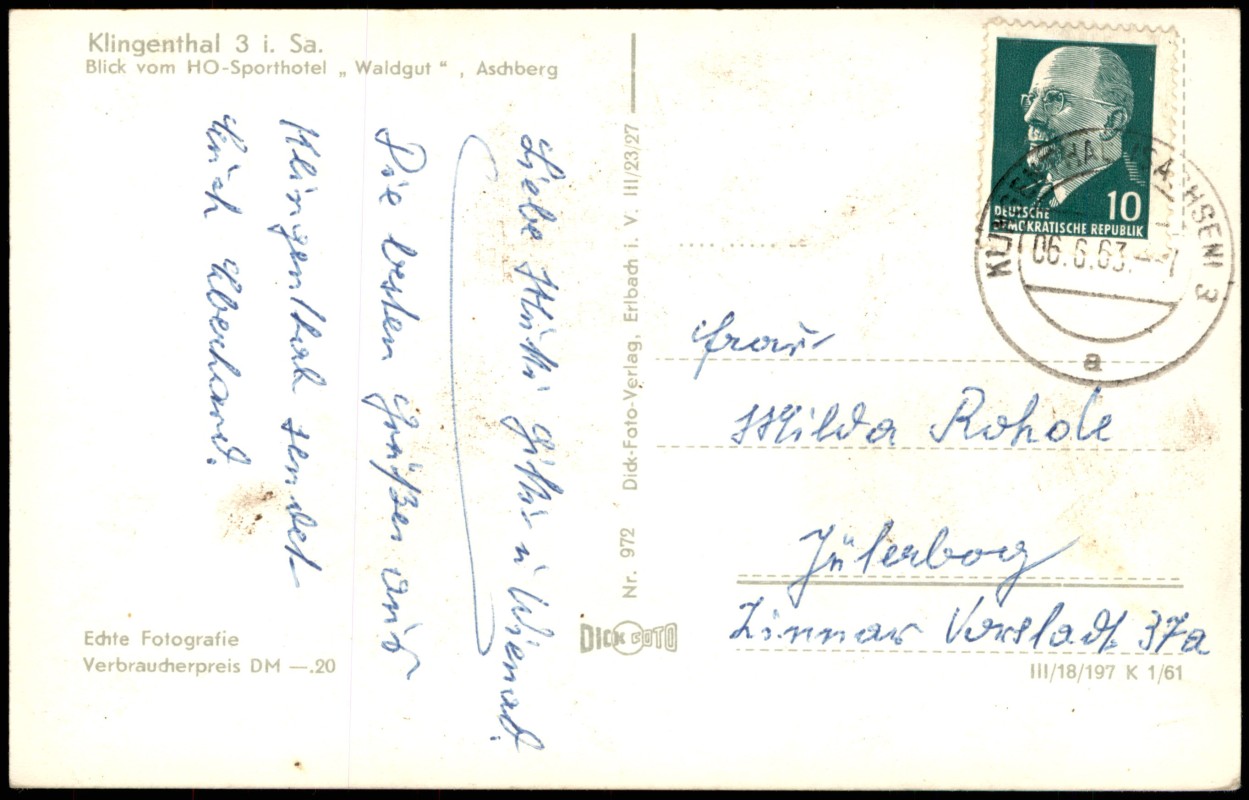 Klingenthal 3 i. Sa.
Blick vom HO-Sporthotel „ Waldgut " , Aschberg
Liebe Mutti Gitti u Wienad!
Die besten Grüßen aus
Klingenthal sendet
Euch Eberhard.
Echte Fotografie
Verbraucherpreis DM —.20
Nr. 972 Dick-Foto-Verlag, Erlbach i. V. III/23/27
DICK FOTO
DEUTSCHE
DEMOKRATISCHE REPUBLIK
10
KLINGENTHAL (SACHSEN) 3
06.6.63.
a
Frau
Milda Rohde
Jüterbog
Zinnaer Vorstadt 37a
III/18/197 K 1/61